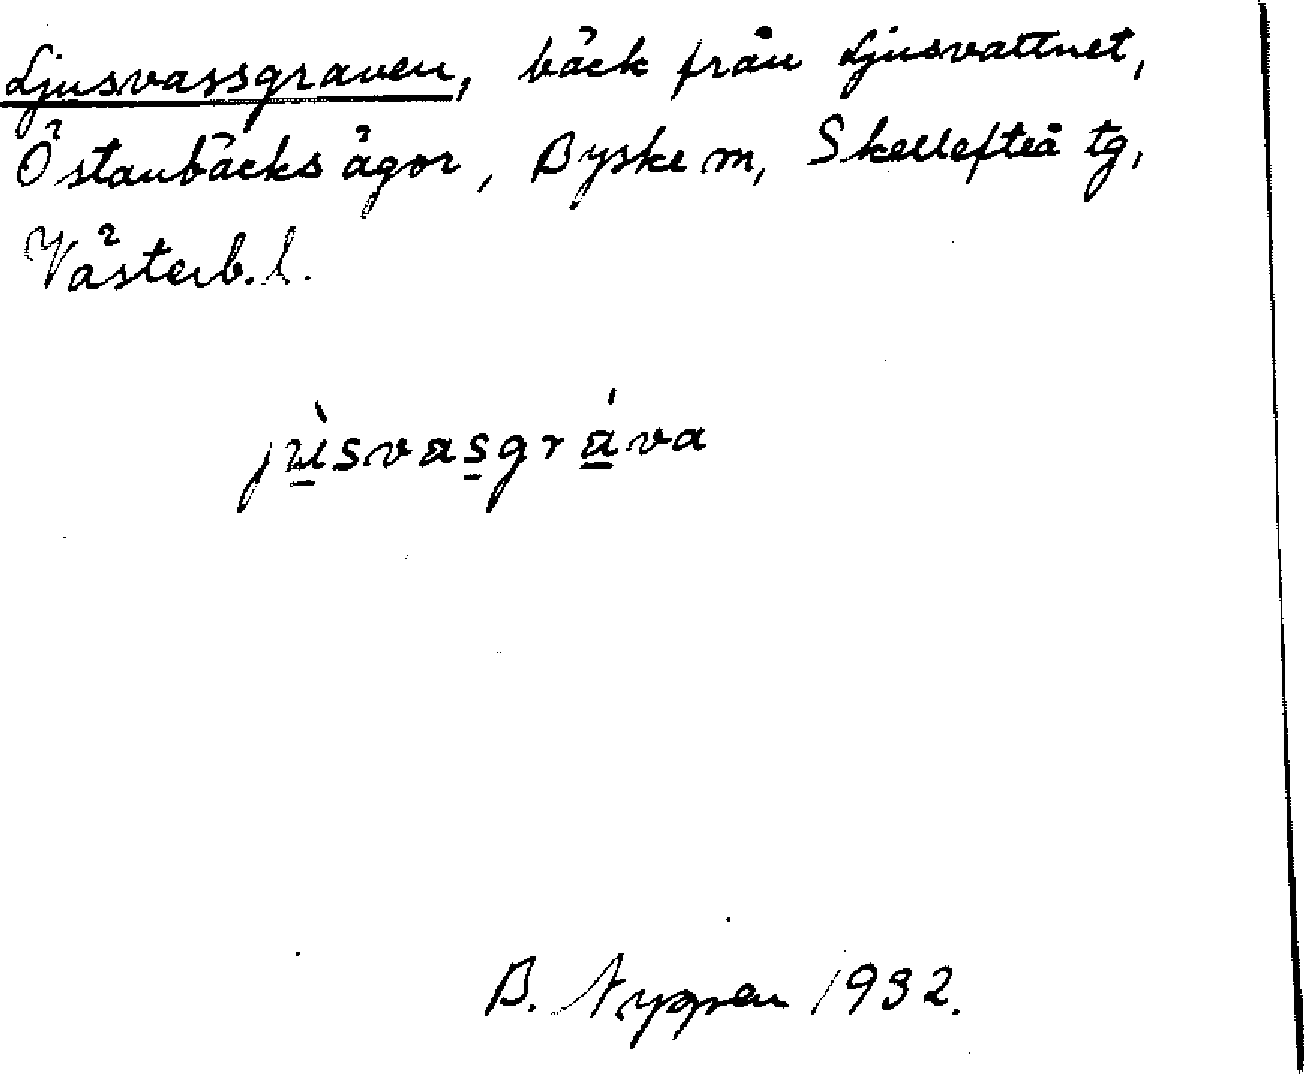 Ljusvassgraven, bäck från Ljusvattnet,
Östanbäcks ägor, Byske m, Skellefteå tg,
Västerb. l.
jùsvasgráva
B. Nyppen 1932.